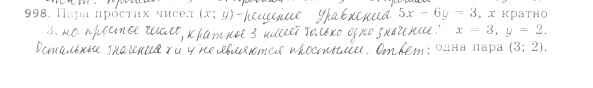 998. Пара простих чисел (x; y)-решение уравнения 5x − 6y = 3, x кратно
3. но простое число, кратное 3 имеет только одно значение: x = 3, y = 2.
Остальные значения x и y не являются простыми. Ответ: одна пара (3; 2).